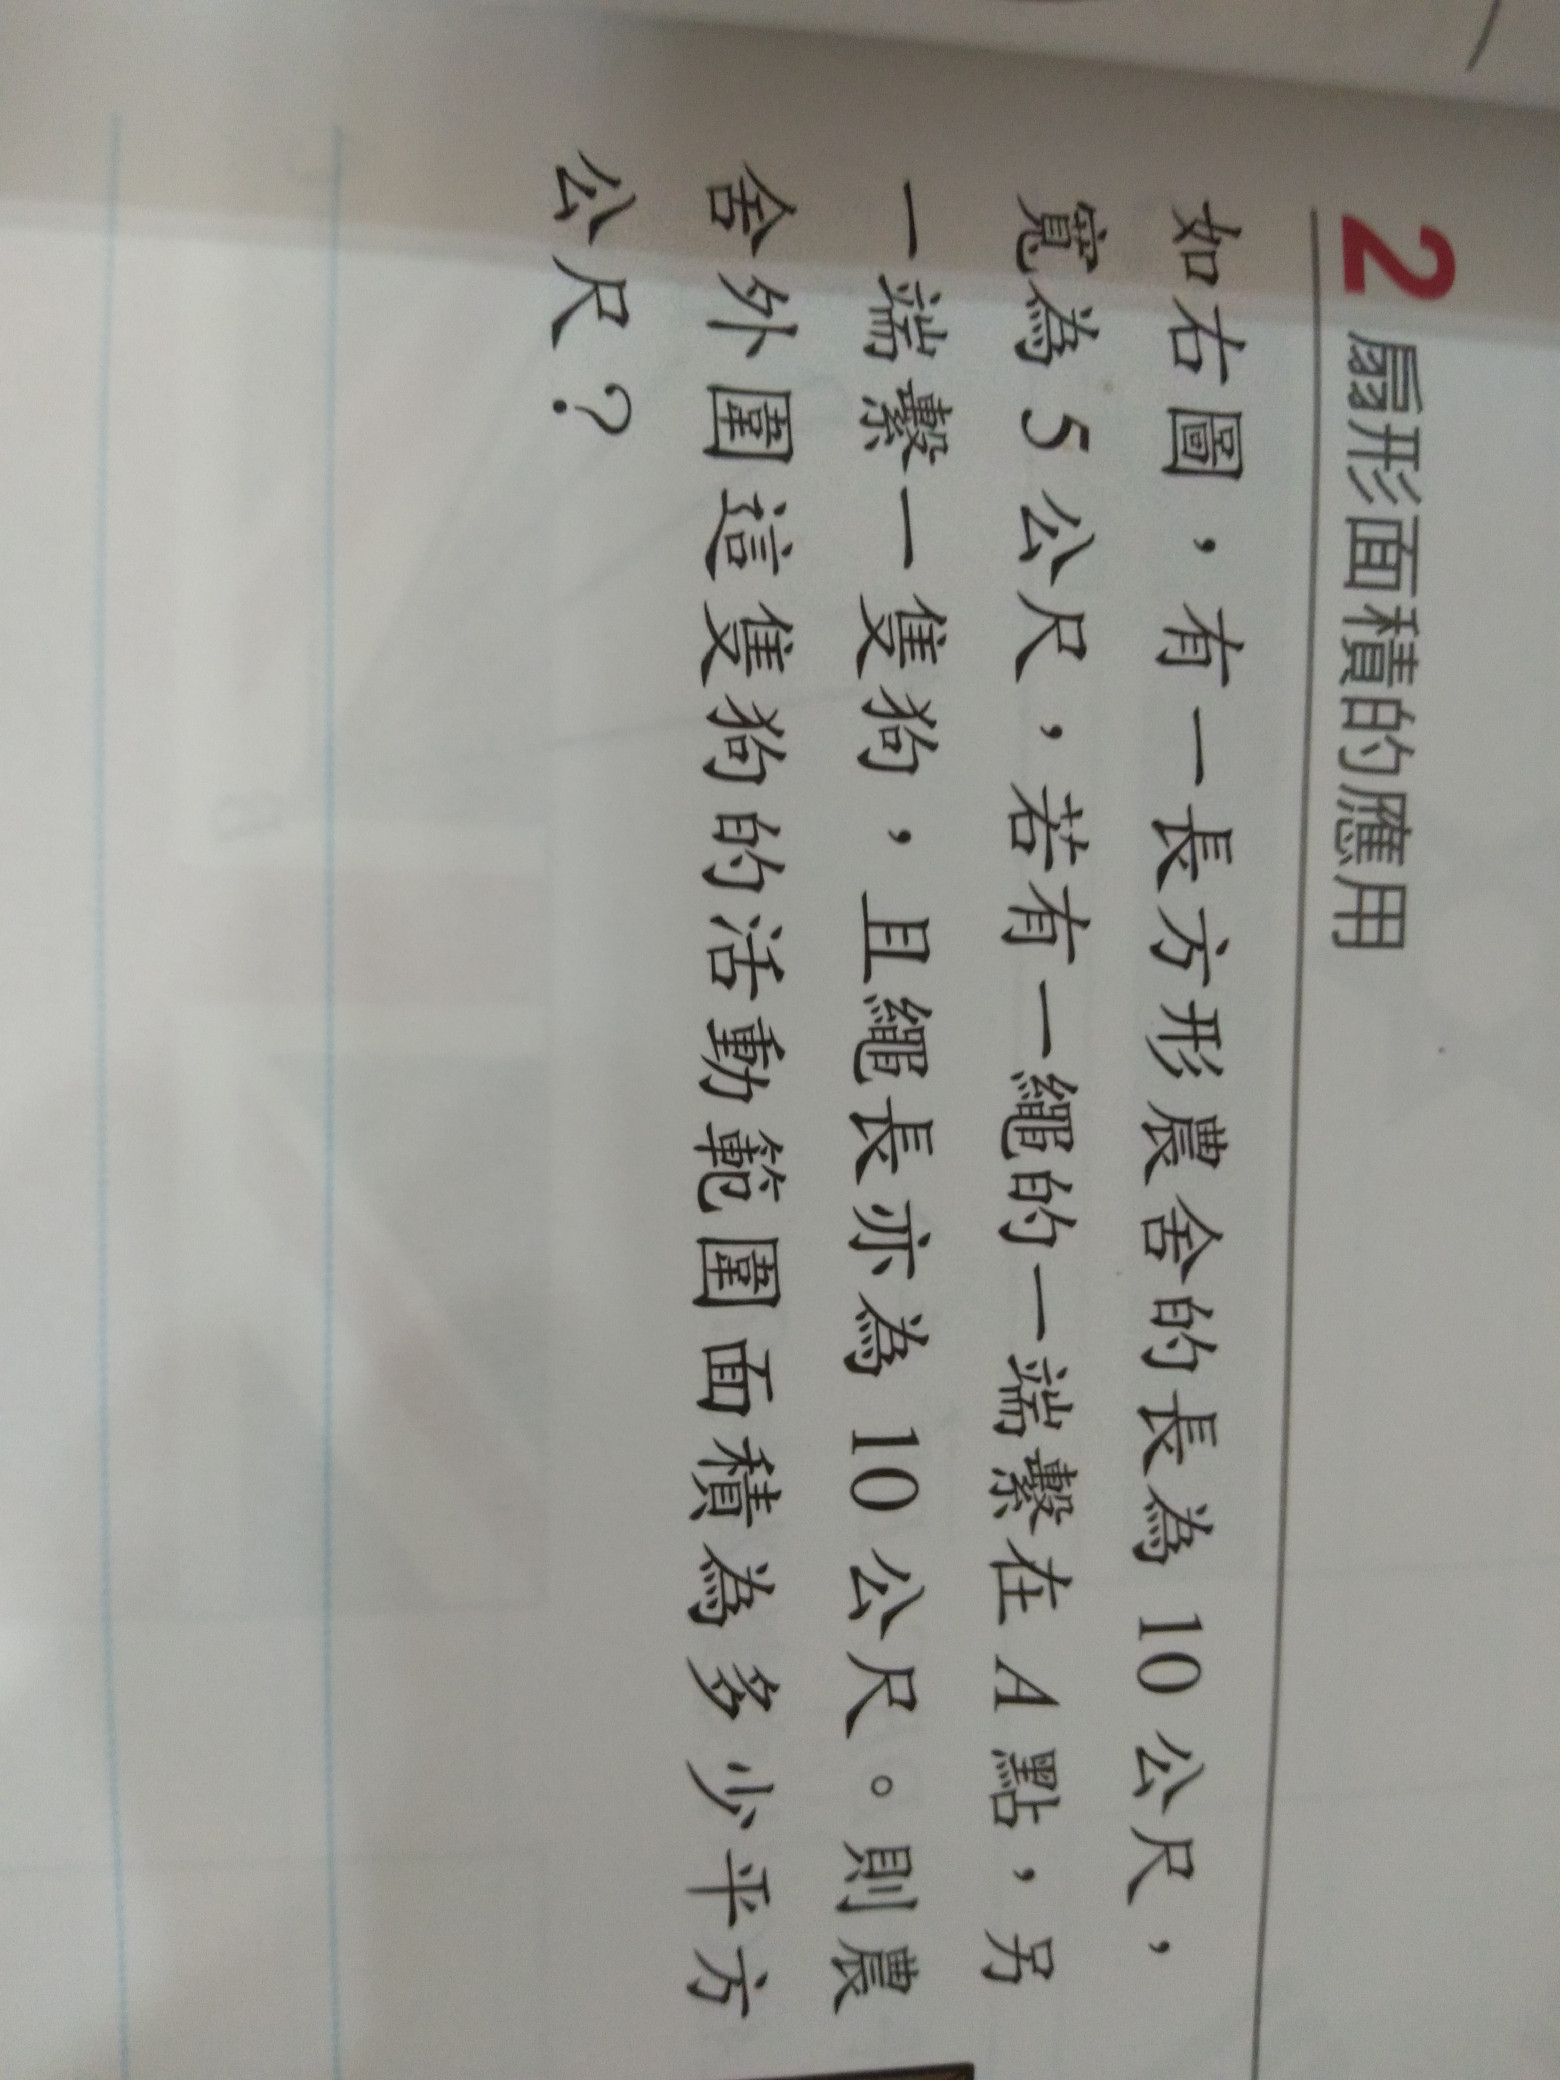 2 扇形面積的應用
如右圖，有一長方形農舍的長為 10 公尺，
寬為 5 公尺，若有一繩的一端繫在 A 點，另
一端繫一隻狗，且繩長亦為 10 公尺。則農
舍外圍這隻狗的活動範圍面積為多少平方
公尺？